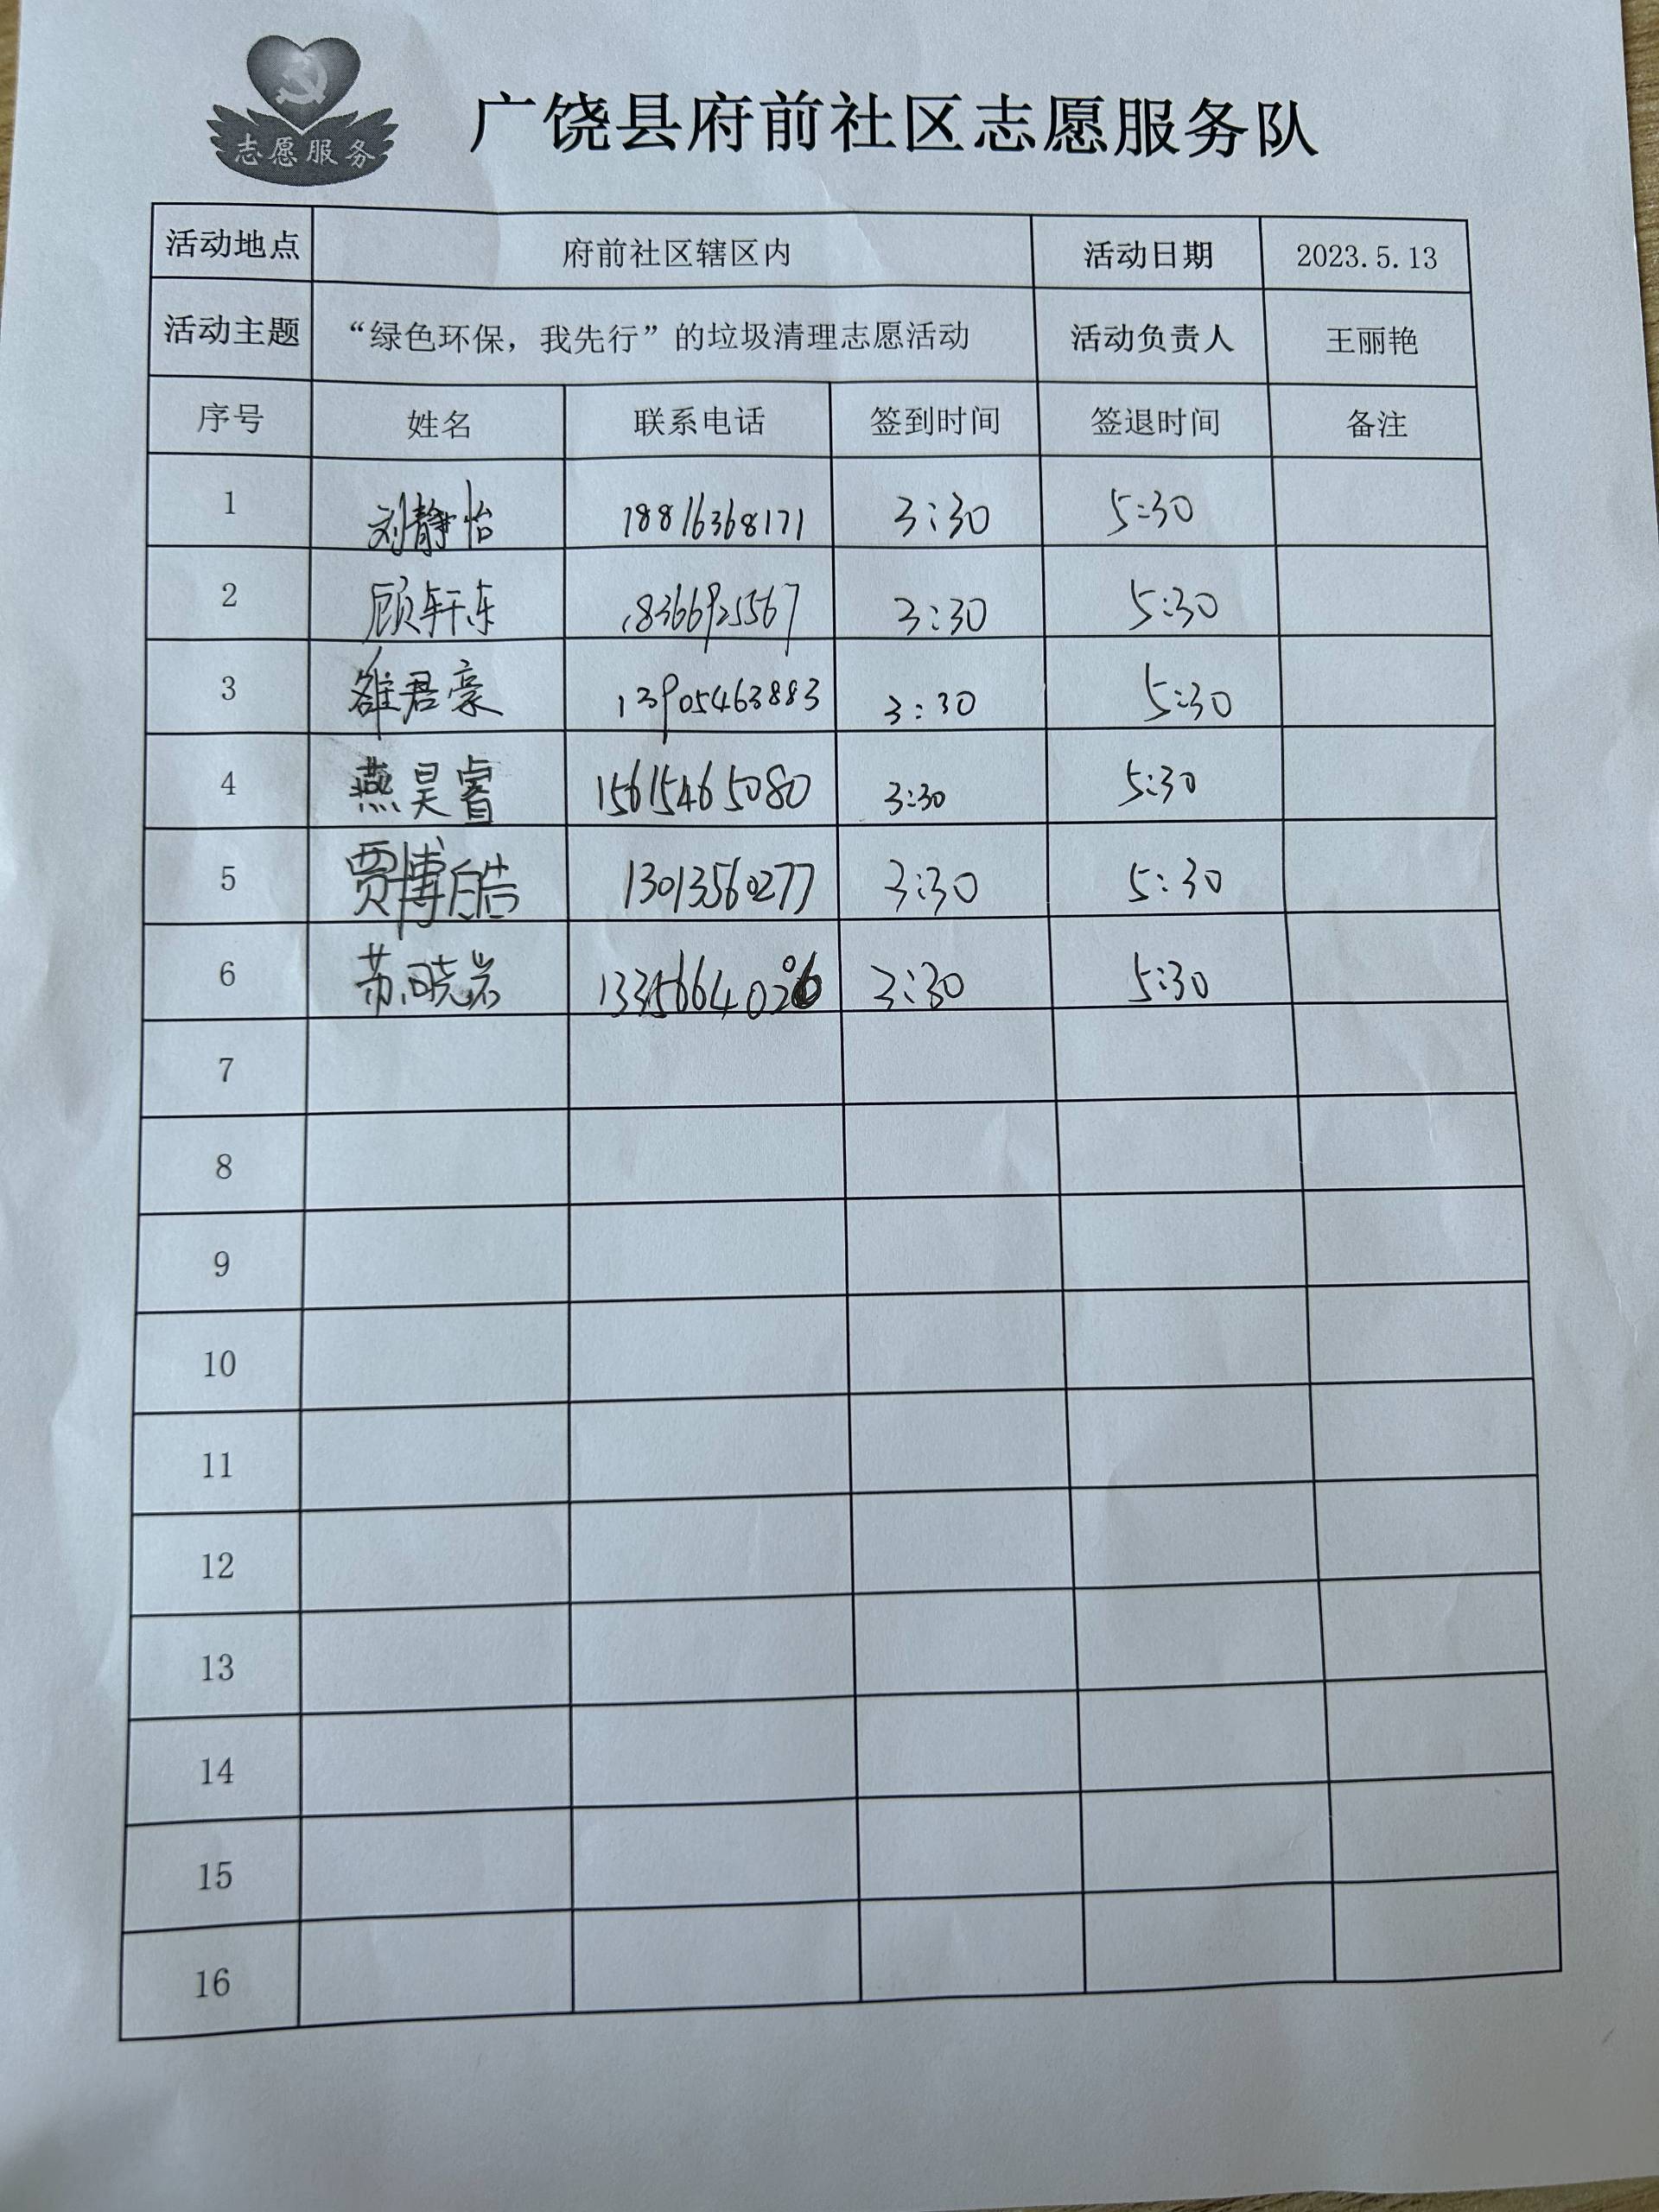 志愿服务
广饶县府前社区志愿服务队
活动地点 府前社区辖区内 活动日期 2023.5.13
活动主题 “绿色环保，我先行”的垃圾清理志愿活动 活动负责人 王丽艳
序号 姓名 联系电话 签到时间 签退时间 备注
1 刘静怡 18816368171 3:30 5:30
2 顾轩东 18366925567 3:30 5:30
3 雒君豪 13905463883 3:30 5:30
4 燕昊睿 15615465080 3:30 5:30
5 贾博皓 13013560277 3:30 5:30
6 苏晓岩 3:30 5:30
7
8
9
10
11
12
13
14
15
16